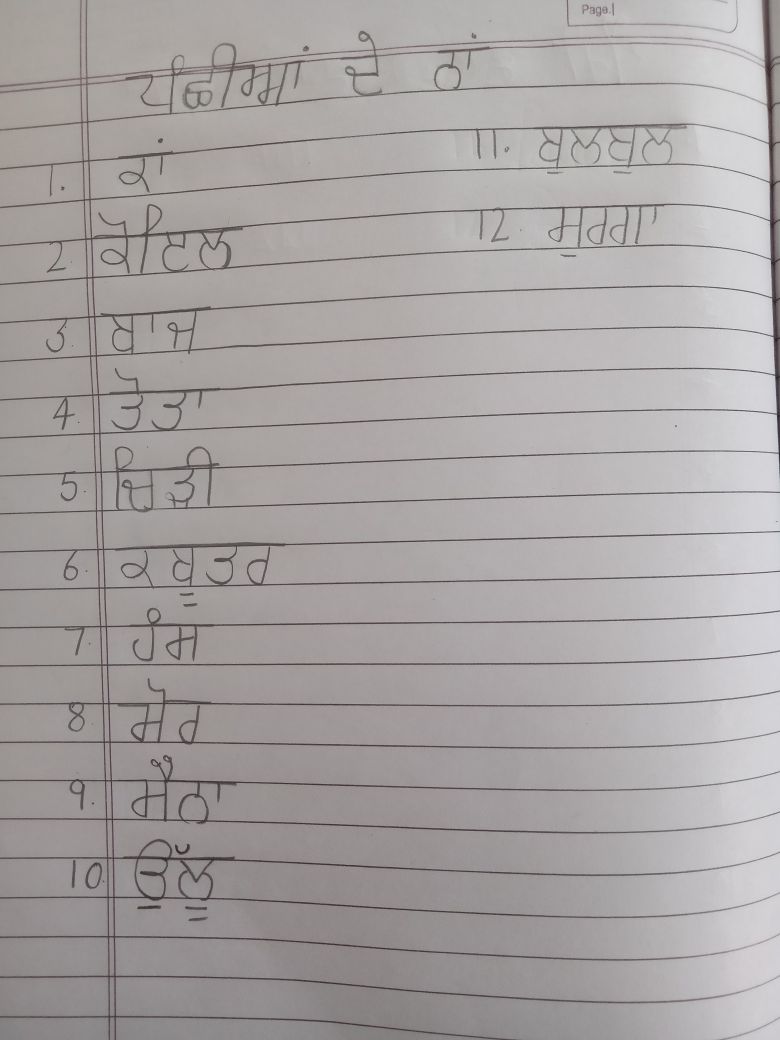 Page.
ਪੰਛੀਆਂ ਦੇ ਨਾਂ
1. ਕਾਂ
2. ਕੋਇਲ
3. ਬਾਜ
4. ਤੋਤਾ
5. ਚਿੜੀ
6. ਕਬੂਤਰ
7. ਹੰਸ
8. ਮੋਰ
9. ਮੈਨਾ
10. ਉੱਲੂ
11. ਬੁਲਬੁਲ
12. ਮੁਰਗਾ